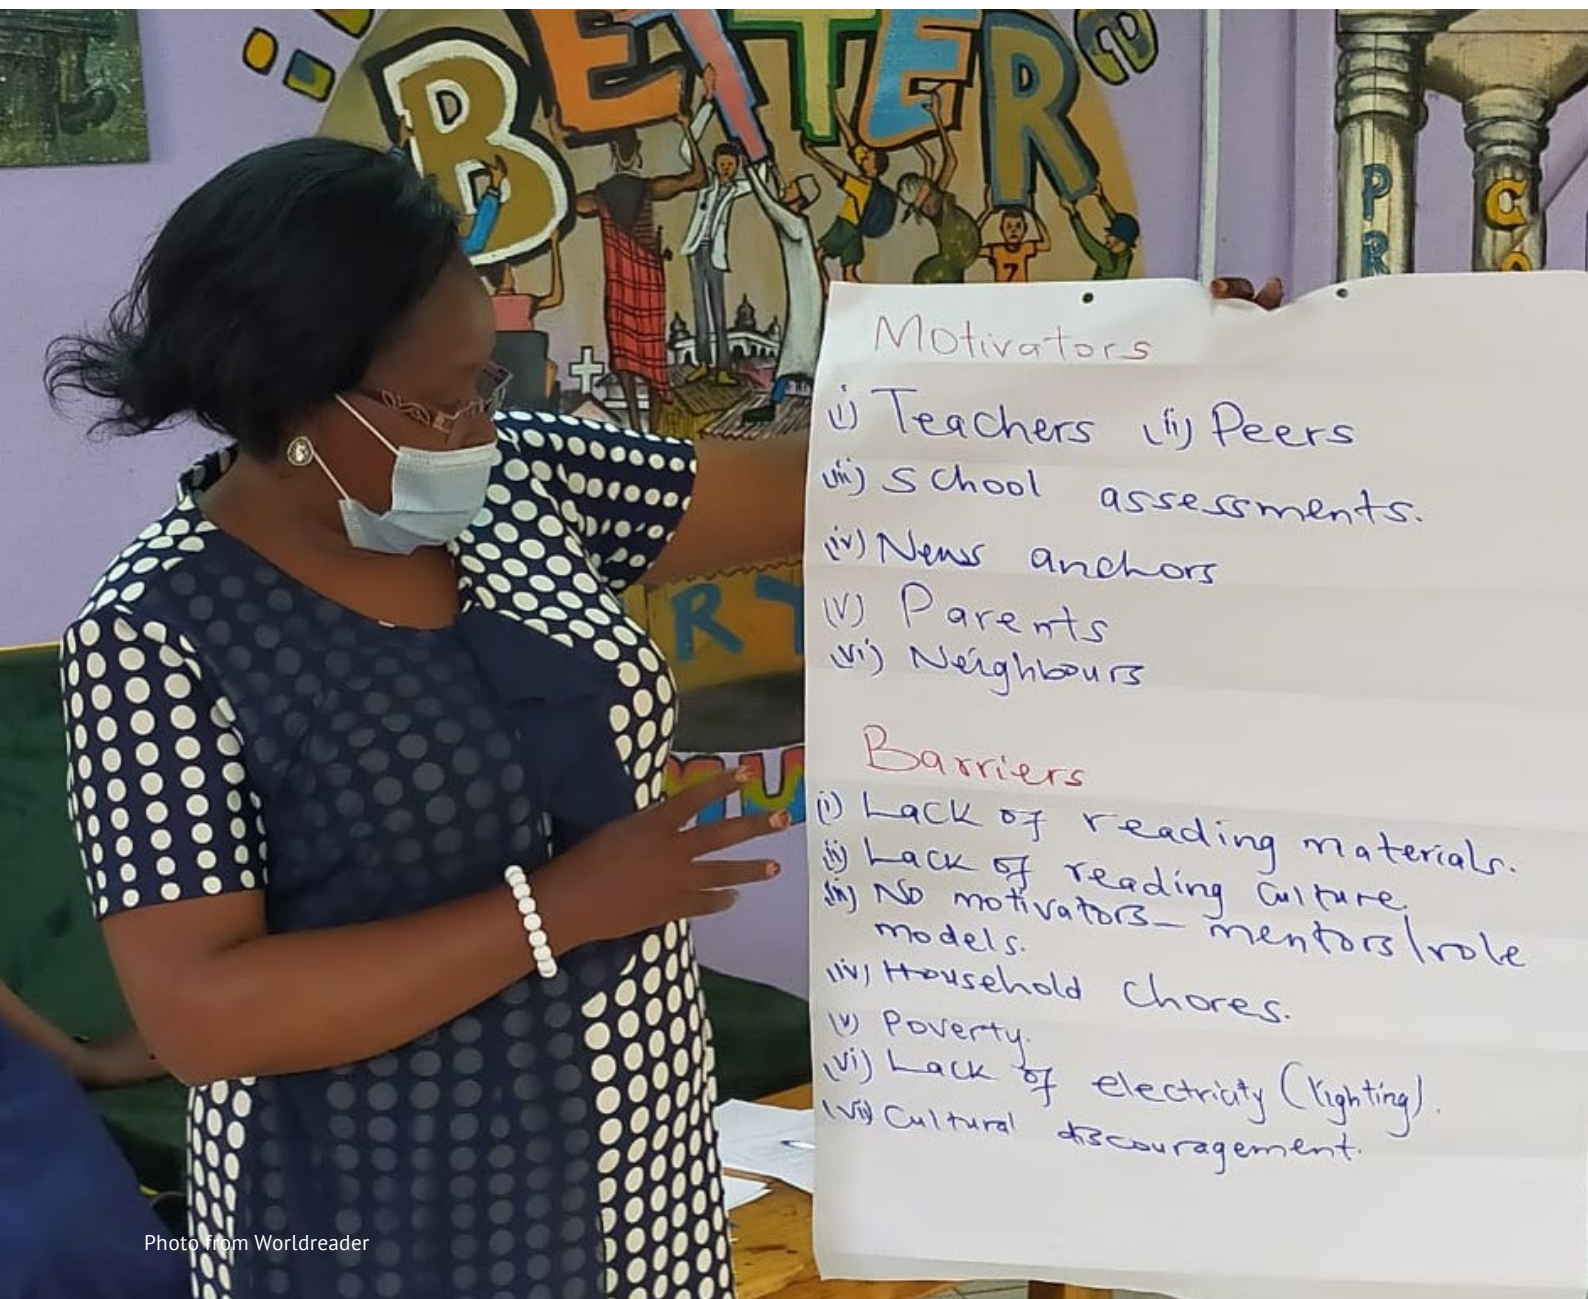 BETTER
7
P
R
C
Motivators
i) Teachers ii) Peers
iii) School assessments.
iv) News anchors
(v) Parents
vi) Neighbours
R Y
MU
Barriers
i) Lack of reading materials.
ii) Lack of reading culture.
iii) No motivators - mentors/role
models.
iv) Household chores.
(v) Poverty.
(vi) Lack of electricity (lighting).
(vii) Cultural discouragement.
Photo from Worldreader